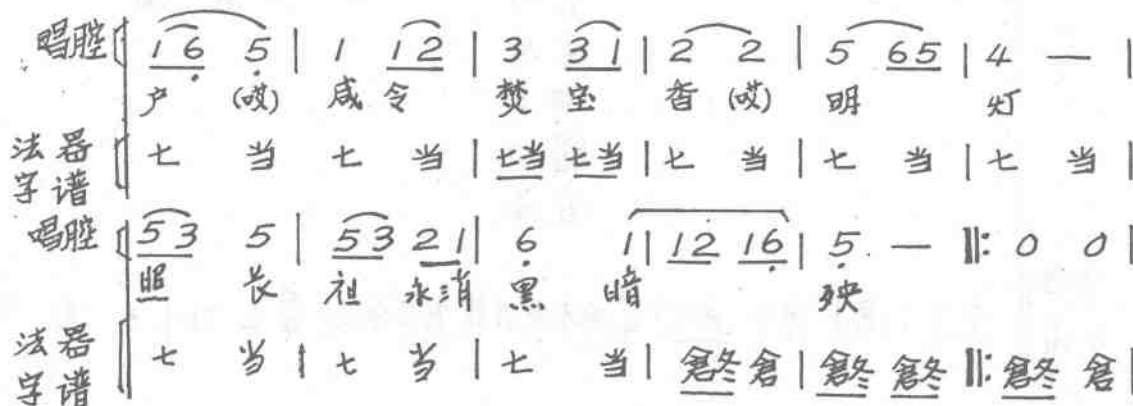 唱腔 1 6̣ 5̣ | 1 1 2 | 3 3 1 | 2 2 | 5 6 5 | 4 — |
户 (哎) 咸 令 焚 宝 香 (哎) 明 灯
法器字谱 七 当 七 当 | 七当 七当 | 七 当 | 七 当 | 七 当 |
唱腔 5 3 5 | 5 3 2 1 | 6̣ 1 | 1 2 1 6̣ | 5̣ — ‖: 0 0 |
照 长 祖 永 消 黑 暗 殃
法器字谱 七 当 | 七 当 | 七 当 | 仓冬 仓 | 仓冬 仓冬 ‖: 仓冬 仓 |